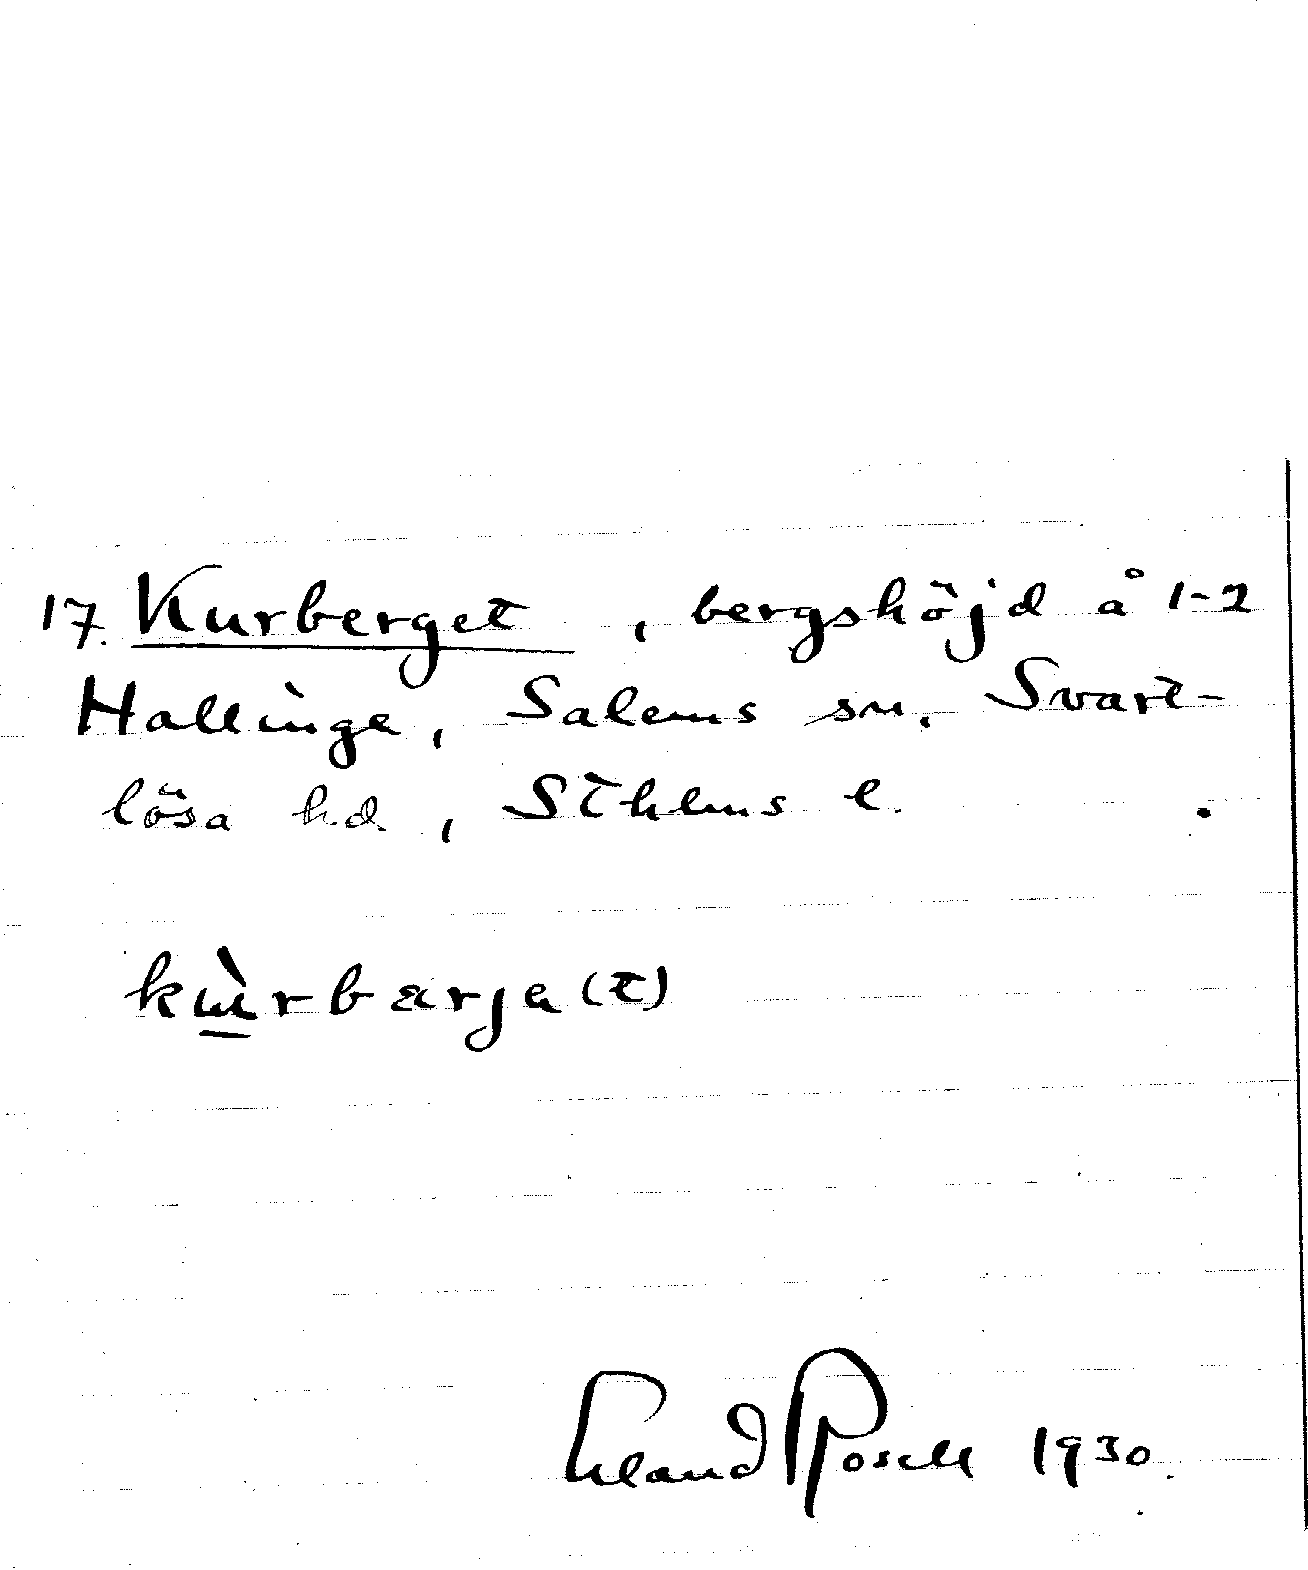 17. Kurberget, bergshöjd å 1-2
Hallinge, Salems sn. Svart-
lösa hd, Sthlms l.
kùrbærja(t)
Erland Rosell 1930.